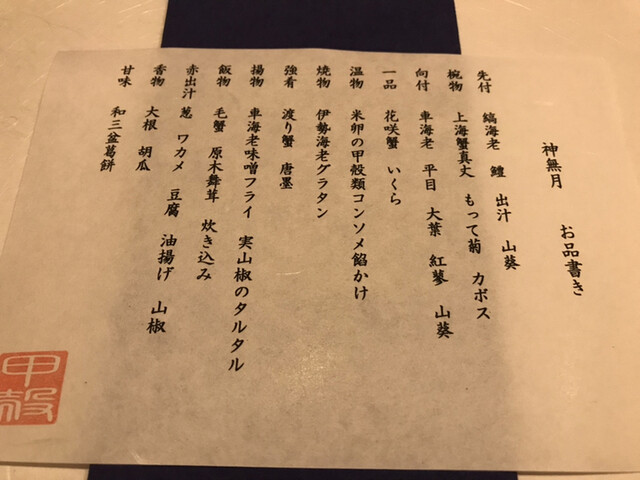 神無月　お品書き
先付　縞海老　鱧　出汁　山葵
椀物　上海蟹真丈　もって菊　カボス
向付　車海老　平目　大葉　紅蓼　山葵
一品　花咲蟹　いくら
温物　米卵の甲殻類コンソメ餡かけ
焼物　伊勢海老グラタン
強肴　渡り蟹　唐墨
揚物　車海老味噌フライ　実山椒のタルタル
飯物　毛蟹　原木舞茸　炊き込み
赤出汁　葱　ワカメ　豆腐　油揚げ　山椒
香物　大根　胡瓜
甘味　和三盆葛餅
甲殻